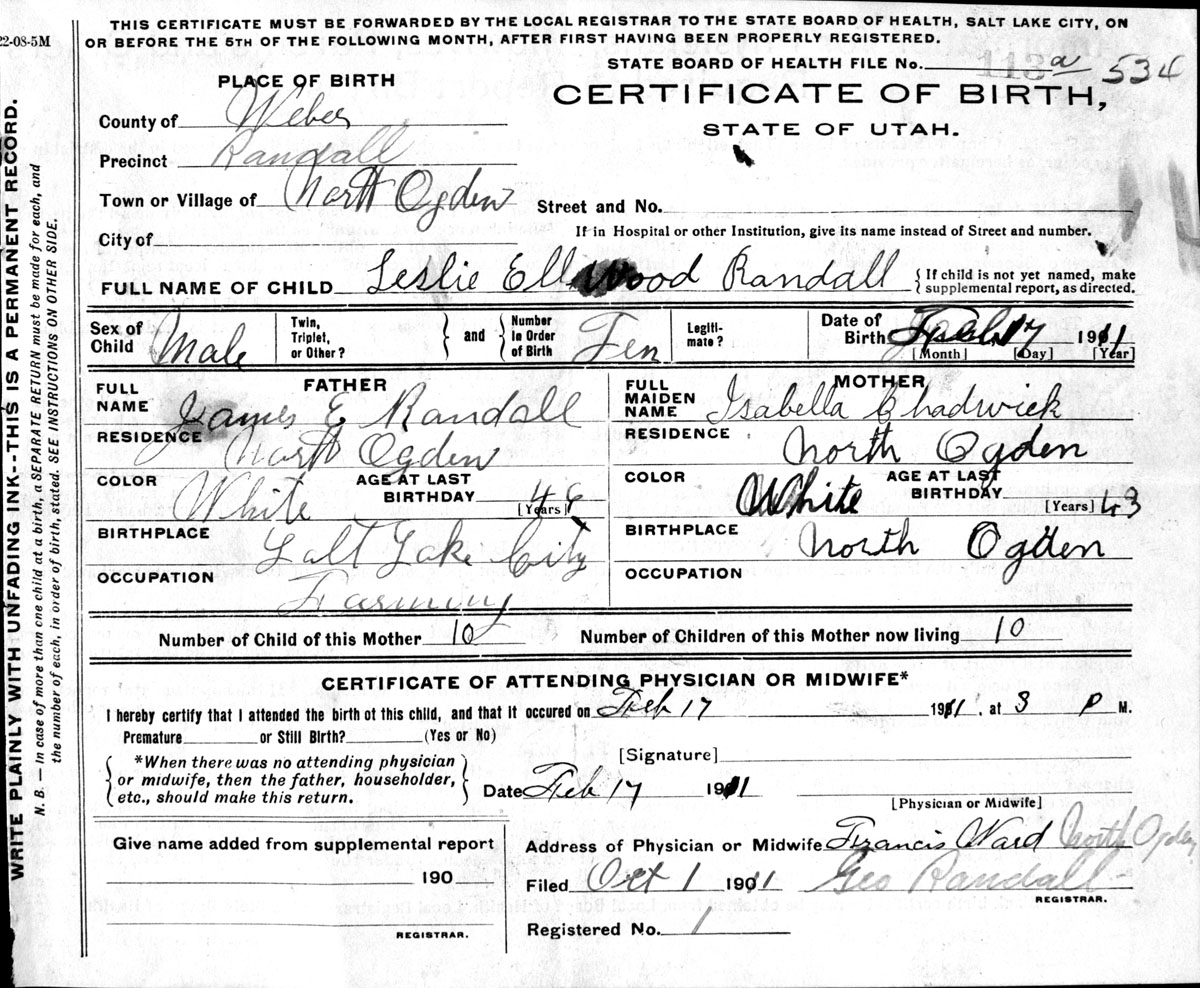 THIS CERTIFICATE MUST BE FORWARDED BY THE LOCAL REGISTRAR TO THE STATE BOARD OF HEALTH, SALT LAKE CITY, ON
22-08-5M
OR BEFORE THE 5TH OF THE FOLLOWING MONTH, AFTER FIRST HAVING BEEN PROPERLY REGISTERED.
STATE BOARD OF HEALTH FILE No. 113 a 534
PLACE OF BIRTH
CERTIFICATE OF BIRTH,
County of Weber
STATE OF UTAH.
Precinct Randall
Town or Village of North Ogden
Street and No.
If in Hospital or other Institution, give its name instead of Street and number.
City of
FULL NAME OF CHILD Leslie Ellwood Randall { If child is not yet named, make supplemental report, as directed.
Sex of Child Male
Twin, Triplet, or Other? } and { Number in Order of Birth Ten
Legitimate?
Date of Birth Feb 17 1911
[Month] [Day] [Year]
FATHER
FULL NAME James E Randall
RESIDENCE North Ogden
COLOR White AGE AT LAST BIRTHDAY 46 [Years]
BIRTHPLACE Salt Lake City
OCCUPATION Farming
MOTHER
FULL MAIDEN NAME Isabella Chadwick
RESIDENCE North Ogden
COLOR White AGE AT LAST BIRTHDAY [Years] 43
BIRTHPLACE North Ogden
OCCUPATION
Number of Child of this Mother 10 Number of Children of this Mother now living 10
CERTIFICATE OF ATTENDING PHYSICIAN OR MIDWIFE*
I hereby certify that I attended the birth of this child, and that it occured on Feb 17 1911, at 3 P M.
Premature or Still Birth? (Yes or No)
[Signature]
{ *When there was no attending physician
or midwife, then the father, householder,
etc., should make this return. }
Date Feb 17 1911
[Physician or Midwife]
Give name added from supplemental report
190
REGISTRAR.
Address of Physician or Midwife Francis Ward North Ogden
Filed Oct 1 1911 Geo Randall
REGISTRAR.
Registered No. 1
WRITE PLAINLY WITH UNFADING INK--THIS IS A PERMANENT RECORD.
N. B. — In case of more than one child at a birth, a SEPARATE RETURN must be made for each, and
the number of each, in order of birth, stated. SEE INSTRUCTIONS ON OTHER SIDE.